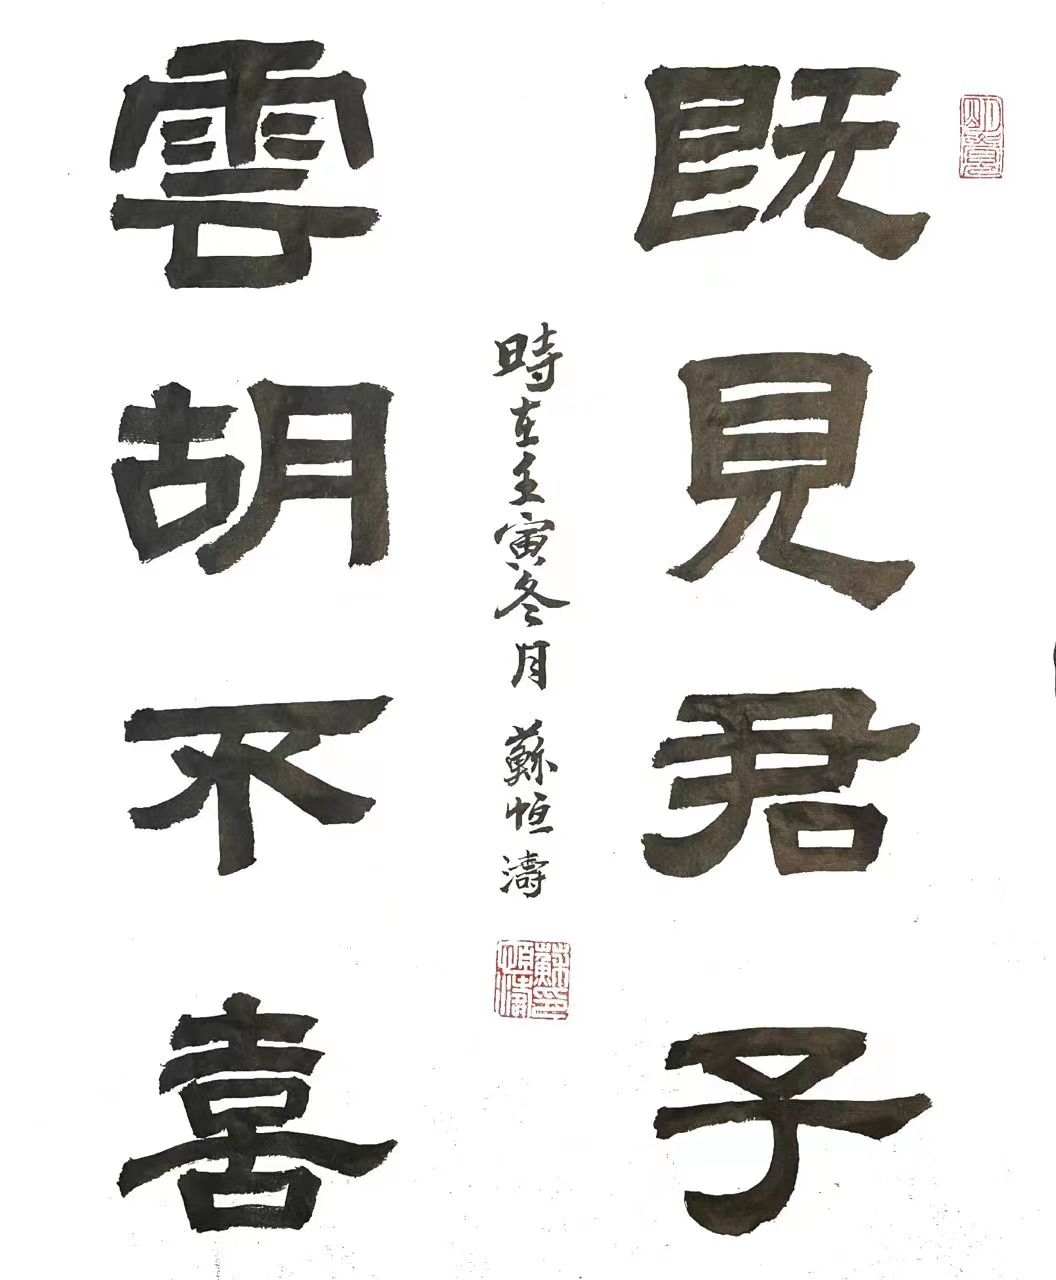 既見君子
雲胡不喜
時在壬寅冬月 蘇恒濤
蘇恒濤印